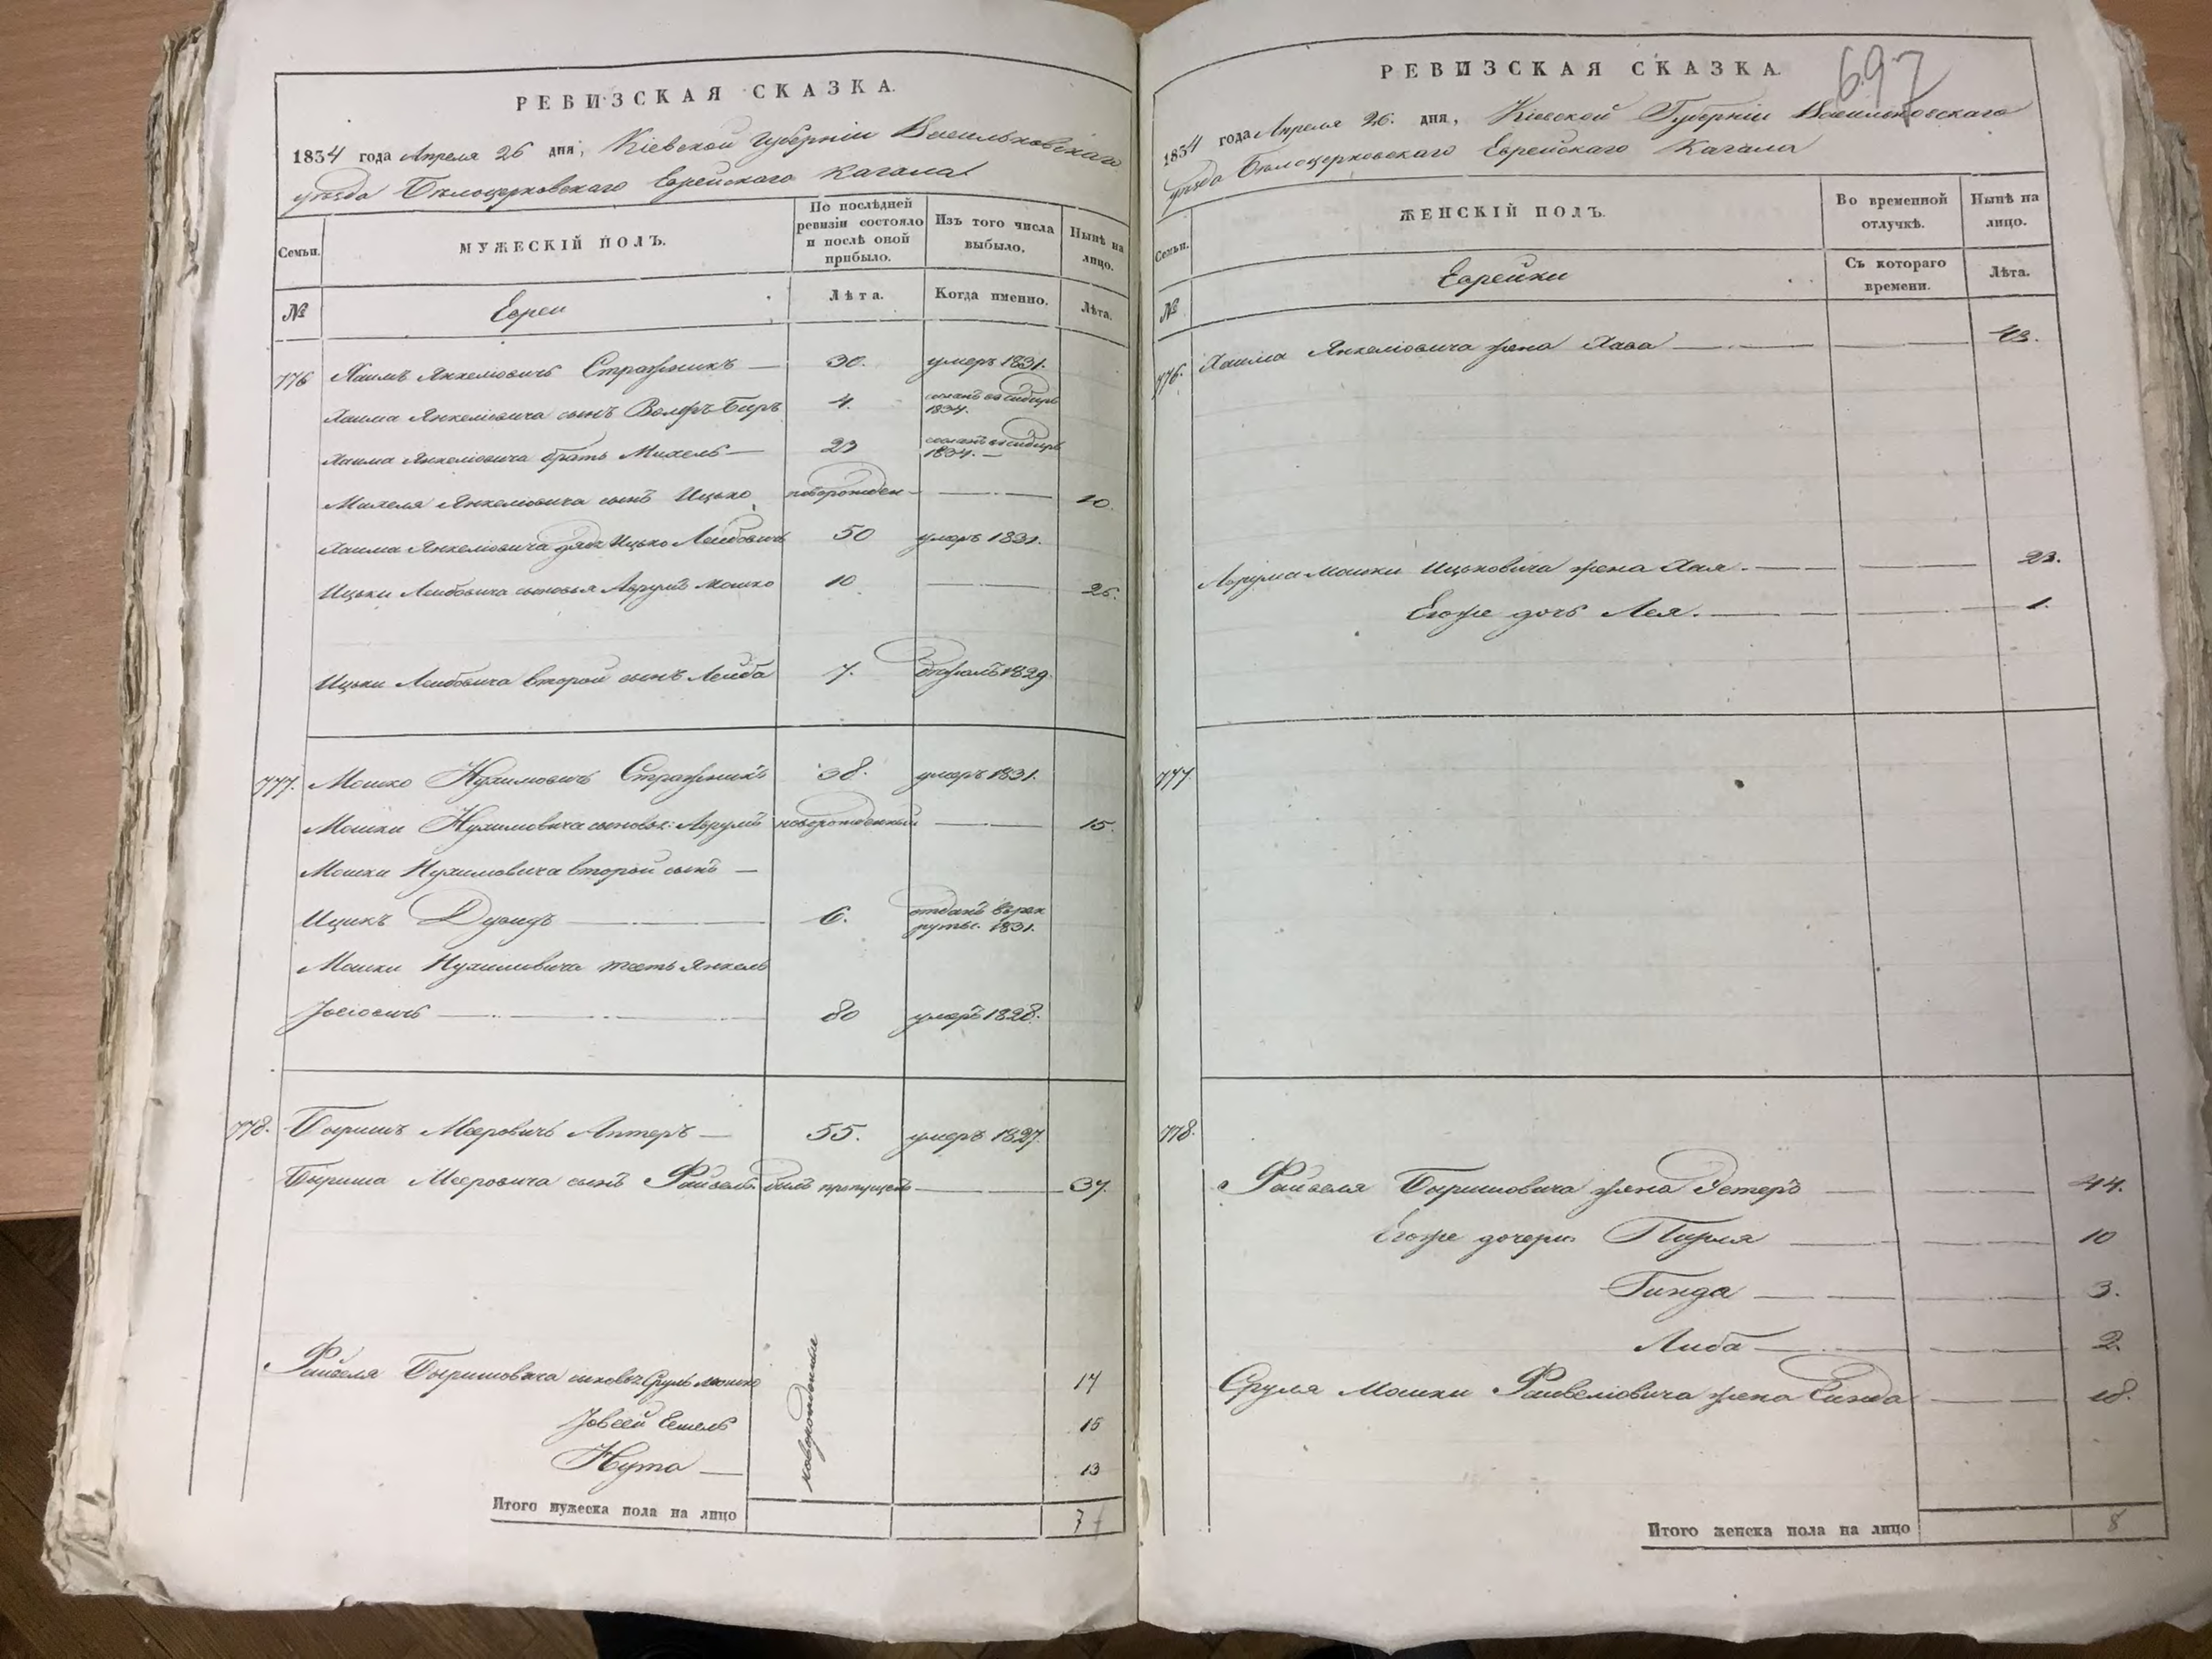 РЕВИЗСКАЯ СКАЗКА.
1834 года Апреля 26 дня, Кіевской Губерніи Васильковскаго
уѣзда Бѣлоцерковскаго Еврейскаго Кагала
Семьи.
МУЖЕСКІЙ ПОЛЪ.
По послѣдней ревизіи состояло и послѣ оной прибыло.
Изъ того числа выбыло.
Нынѣ на лицо.
№
Евреи
Лѣта.
Когда именно.
Лѣта.
776 Хаимъ Янкеліовичъ Стражникъ — 30. умеръ 1831.
Хаима Янкеліовича сынъ Волфъ Беръ 4. сосланъ въ сибирь 1834.
Хаима Янкеліовича братъ Михель — 23 сосланъ въ сибирь 1834. —
Михеля Янкеліовича сынъ Ицько новорожден — 10.
Хаима Янкеліовича дядя Ицько Лейбовичъ 50 умеръ 1831.
Ицьки Лейбовича сыновья Аврумъ Мошко 10 — 26.
Ицьки Лейбовича второй сынъ Лейба 7. 1829.
777. Мошко Нухимовичъ Стражникъ 38. умеръ 1831.
Мошки Нухимовича сыновья: Аврумъ новорожденный — 15.
Мошки Нухимовича второй сынъ —
Ицикъ Дувидъ — 6. отданъ в рекруты. 1831.
Мошки Нухимовича тесть Янкель
Іосіовичъ — 80 умеръ 1828.
778. Быришъ Мееровичъ Аптеръ — 55. умеръ 1827.
Быриша Мееровича сынъ Файвель былъ пропущенъ — 37.
Файвеля Быришовича сыновья Сруль Мошко новорожденные 17
Іовсей Ешель 15
Нута — 13
Итого мужеска пола на лицо 7
РЕВИЗСКАЯ СКАЗКА.
697
1834 года Апреля 26. дня, Кіевской Губерніи Васильковскаго
уѣзда Бѣлоцерковскаго Еврейскаго Кагала
Семьи.
ЖЕНСКІЙ ПОЛЪ.
Во временной отлучкѣ.
Нынѣ на лицо.
№
Еврейки
Съ котораго времени.
Лѣта.
776. Хаима Янкеліовича жена Хава — 43.
Аврума Мошки Ицьковича жена Хая. — 23.
Егоже дочь Лея. — 1.
777.
778.
Файвеля Быришовича жена Эстеръ — 44.
Егоже дочери: Пирля — 10
Гинда — 3.
Либа — 2.
Сруля Мошки Файвеліовича жена Синда — 18.
Итого женска пола на лицо 8